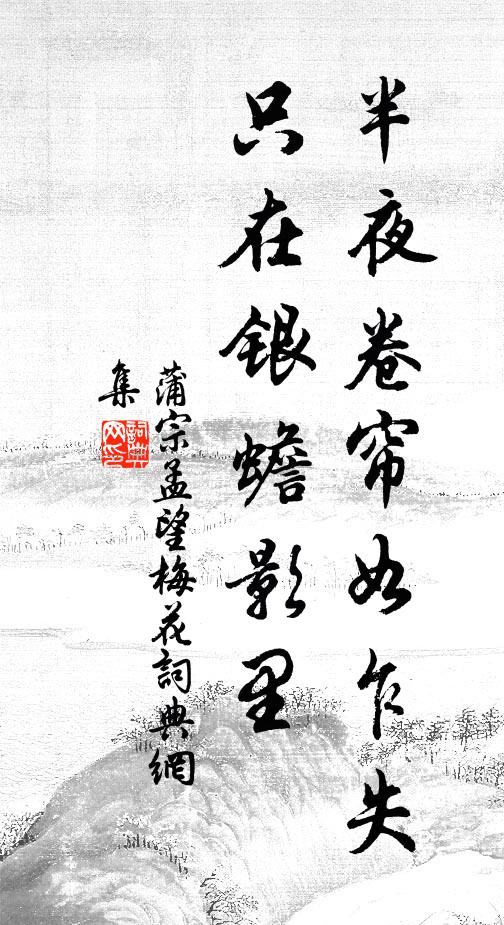 半夜卷帘如乍失
只在银蟾影里
蒲宗孟望梅花詞典網
集